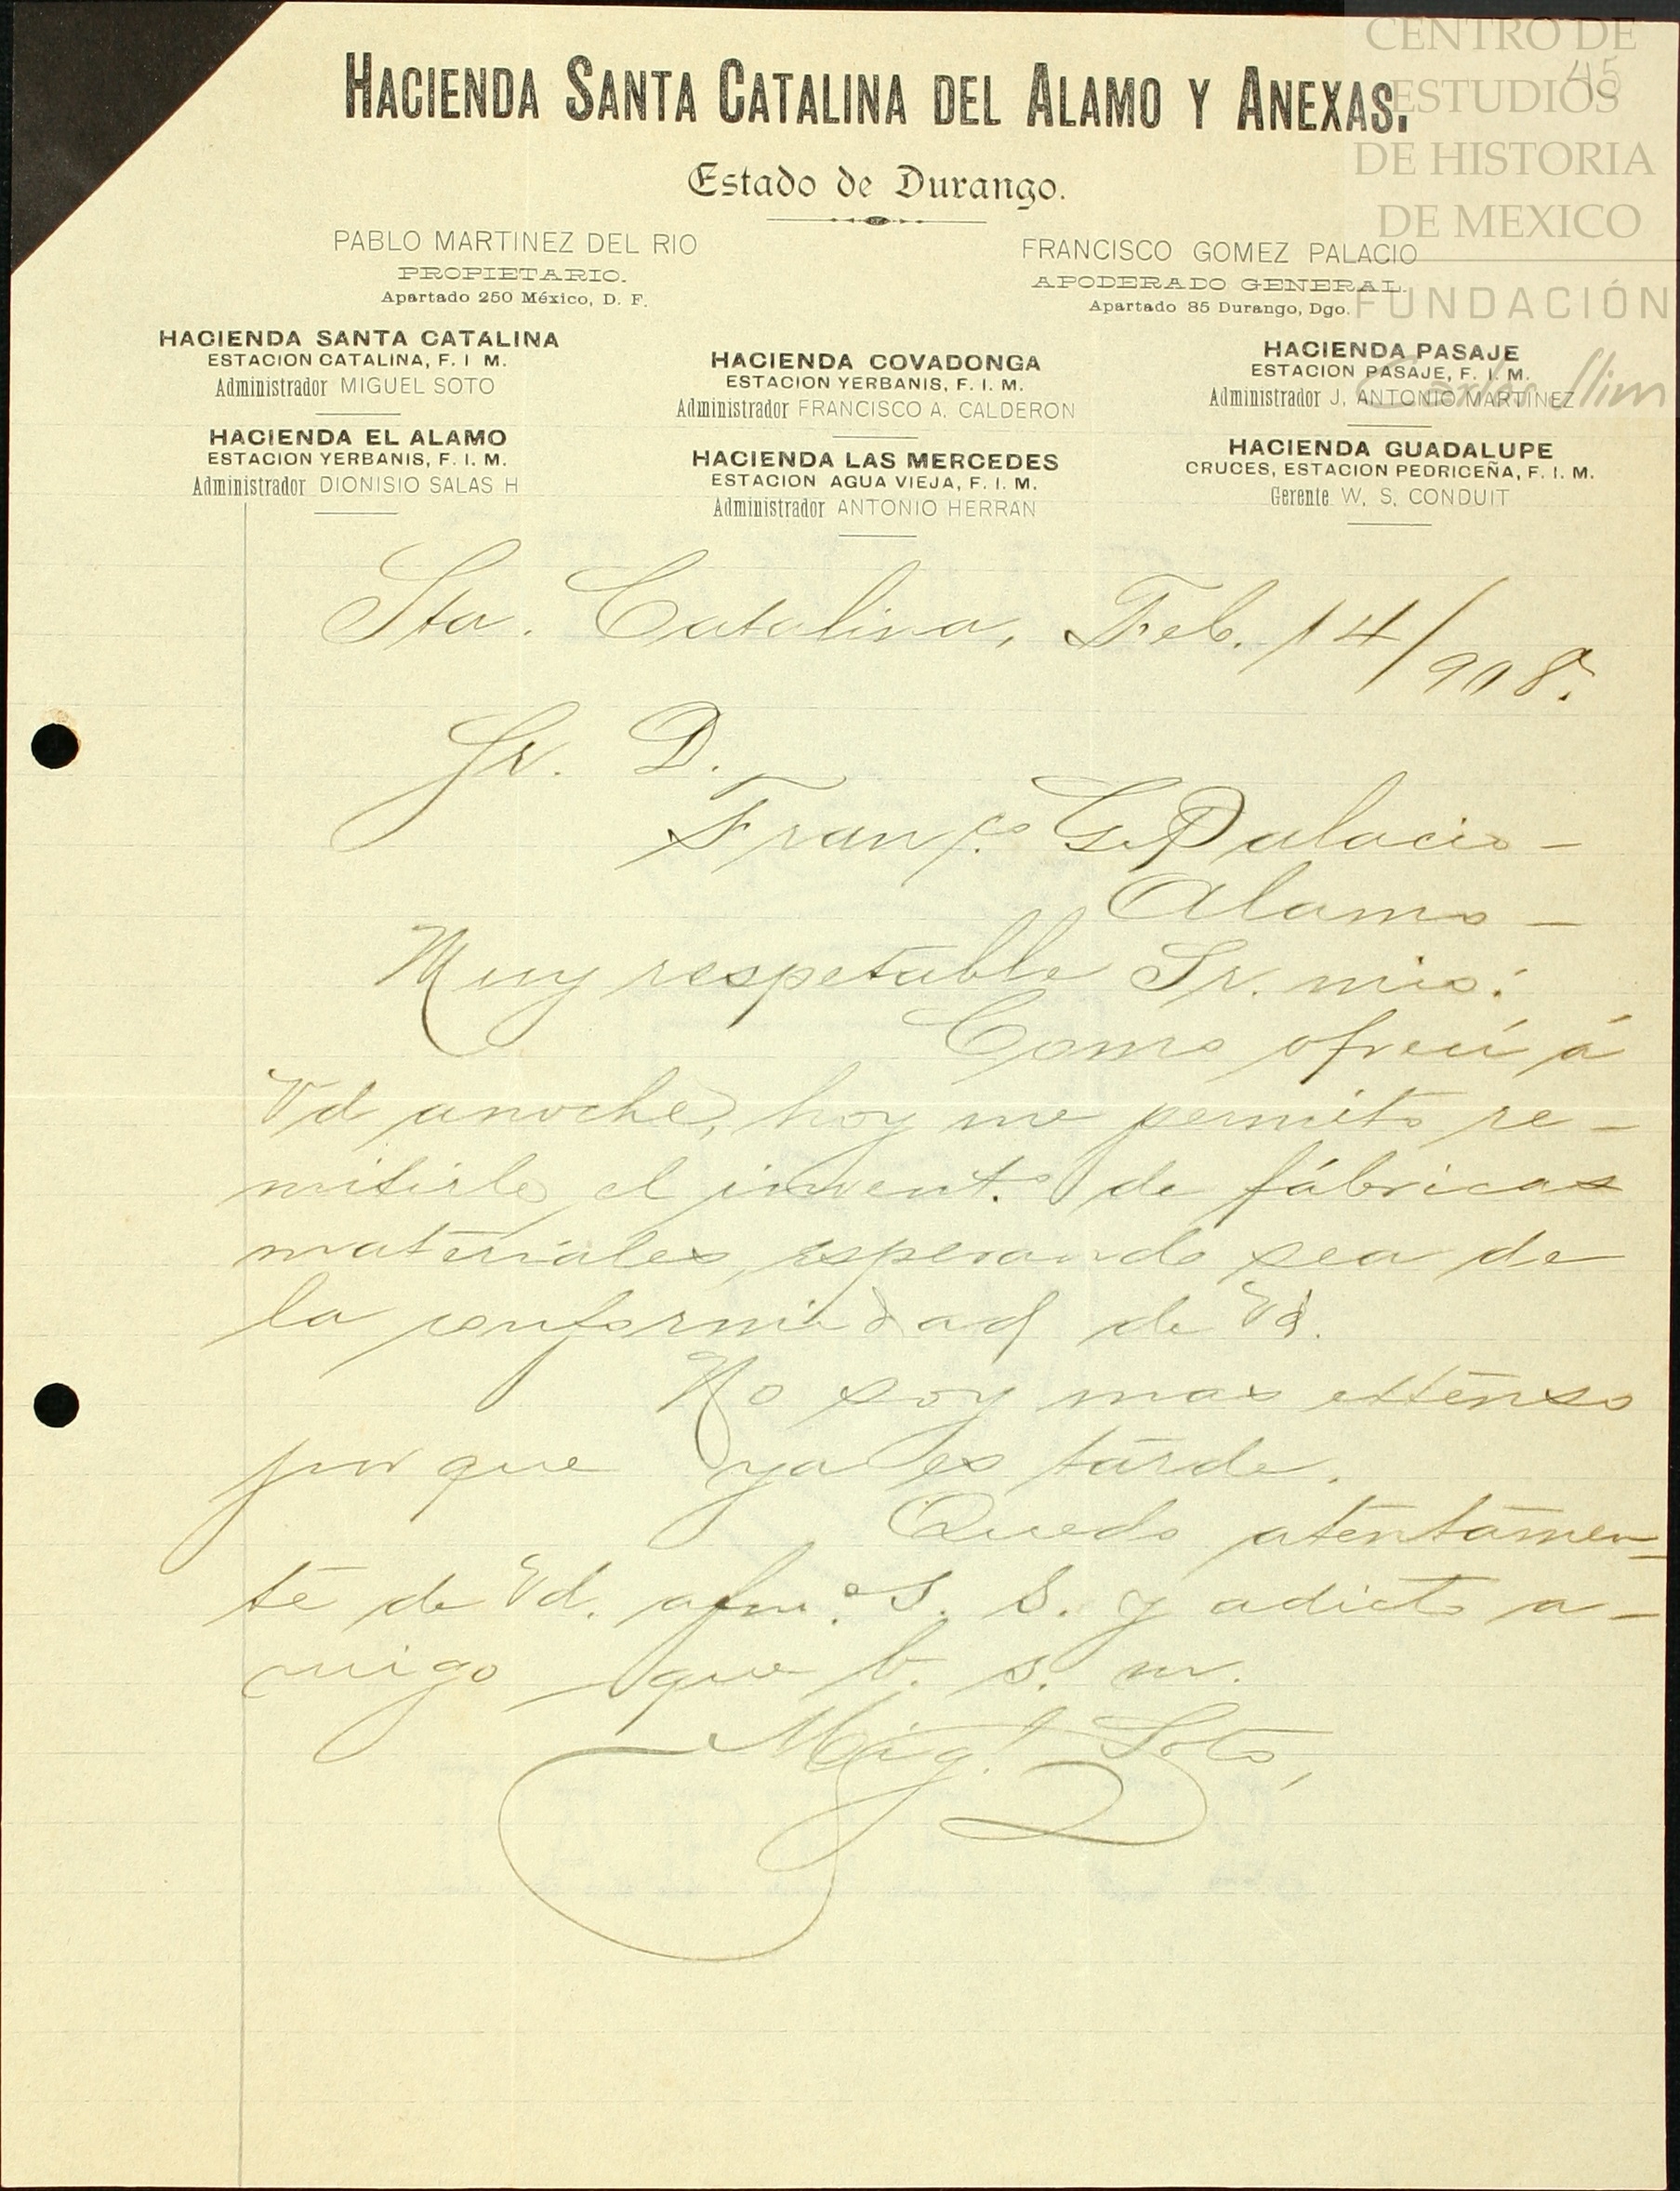 HACIENDA SANTA CATALINA DEL ALAMO Y ANEXAS.
Estado de Durango.
PABLO MARTINEZ DEL RIO
PROPIETARIO.
Apartado 250 México, D. F.
FRANCISCO GOMEZ PALACIO
APODERADO GENERAL.
Apartado 85 Durango, Dgo.
HACIENDA SANTA CATALINA
ESTACION CATALINA, F. I M.
Administrador MIGUEL SOTO
HACIENDA EL ALAMO
ESTACION YERBANIS, F. I. M.
Administrador DIONISIO SALAS H
HACIENDA COVADONGA
ESTACION YERBANIS, F. I. M.
Administrador FRANCISCO A. CALDERON
HACIENDA LAS MERCEDES
ESTACION AGUA VIEJA, F. I. M.
Administrador ANTONIO HERRAN
HACIENDA PASAJE
ESTACION PASAJE, F. I. M.
Administrador J. ANTONIO MARTINEZ
HACIENDA GUADALUPE
CRUCES, ESTACION PEDRICEÑA, F. I. M.
Gerente W. S. CONDUIT
45
CENTRO DE
ESTUDIOS
DE HISTORIA
DE MEXICO
FUNDACIÓN
Carlos Slim
Sta. Catalina, Feb. 14/908.
Sr. D.
Franco. G. Palacio-
Alamo-
Muy respetable Sr. mio:
Como ofrecí á
Vd anoche, hoy me permito re-
mitirle el invent.o de fábricas
materiales, esperando sea de
la conformidad de Vd.
No soy mas extenso
por que ya es tarde.
Quedo atentamen-
te de Vd. afmo. S. S. y adicto a-
migo que b. s. m.
Migl. Soto,